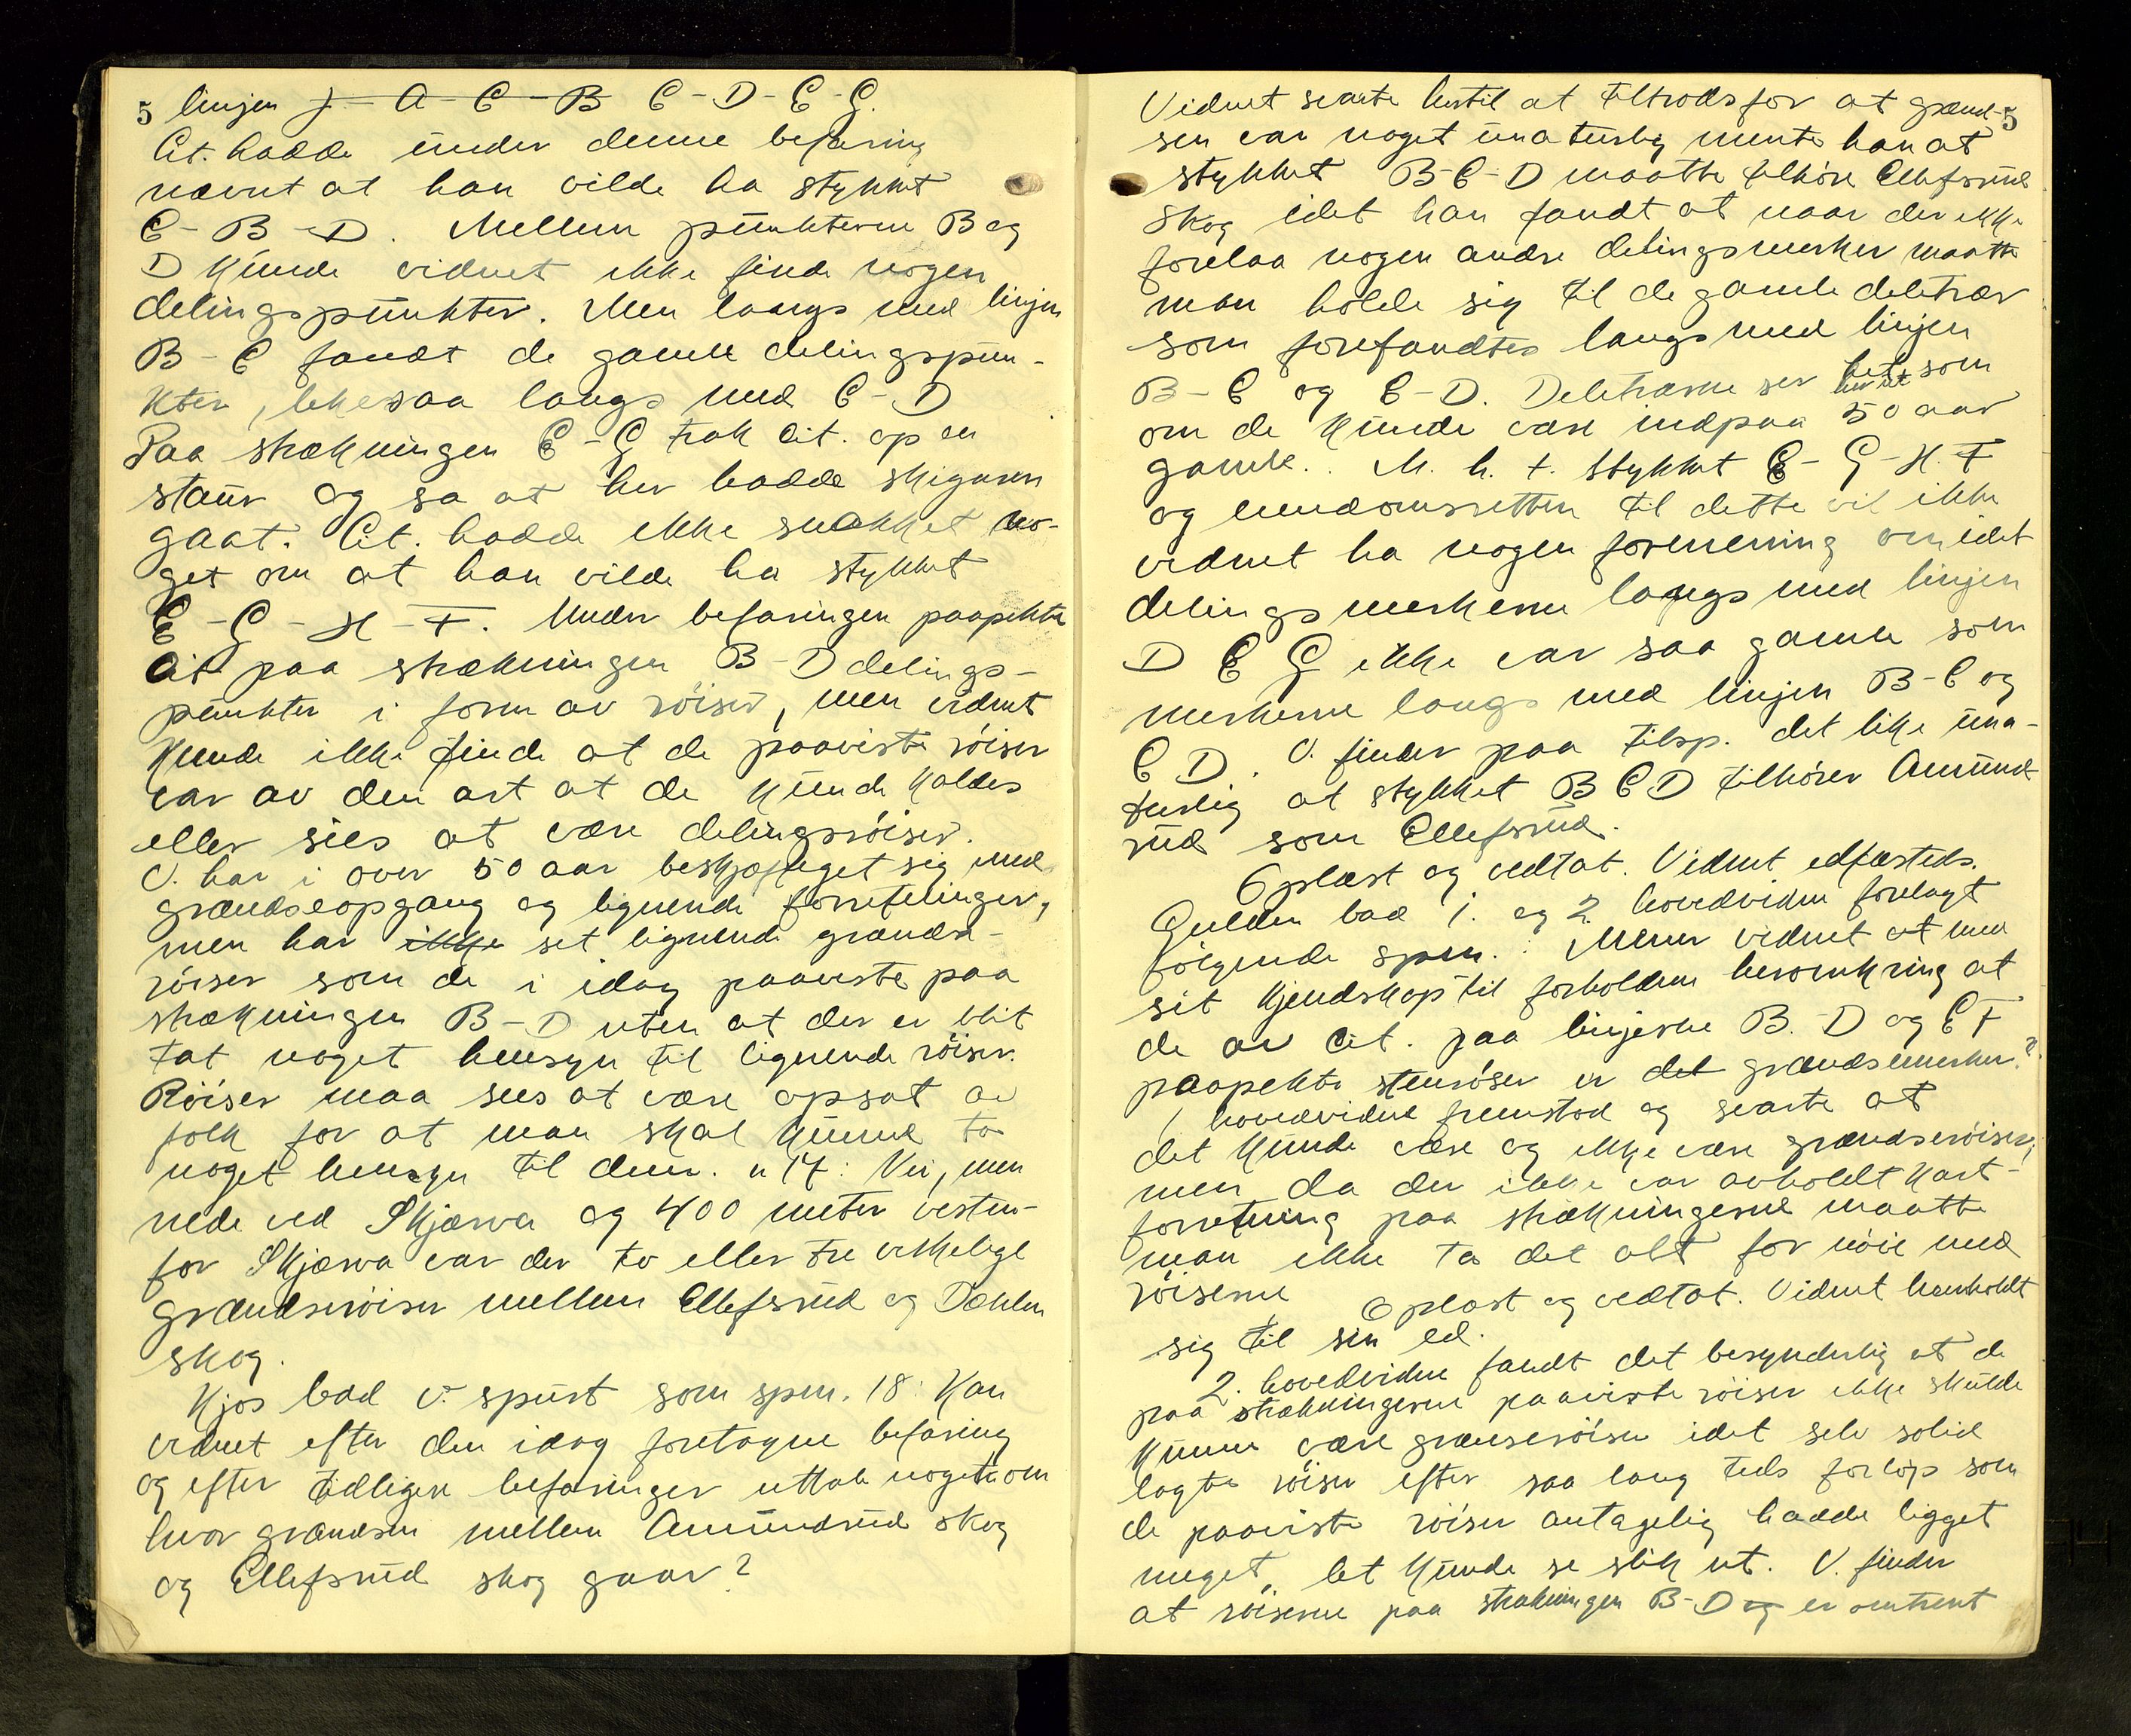 5 linjen J - A - C - B C - D - E - G.
Cit. hadde under denne befaring
nævnt at han vilde ha stykket
C - B - D. Mellem punkterne B og
D kunde vidnet ikke finde nogen
delingspunkter. Men langs med linjen
B - C fandt de gamle delingspun-
kter, likesaa langs med C - D
Paa strækningen E - G trak Cit. op en
staur og sa at her hadde skigaren
gaat. Cit. hadde ikke snakket no-
get om at han vilde ha stykket
E - G - H - F. Under befaringen paapekte
Cit paa strækningen B - D delings-
punkter i form av röiser, men vidnet
kunde ikke finde at de paaviste röiser
var av den art at de kunde kaldes
eller sies at være delingsröiser.
V. har i over 50 aar beskjæftiget sig med
grændseopgang og lignende forretninger,
men har ikke set lignende grændse-
röiser som de i idag paaviste paa
strækningen B - D uten at der er blit
tat noget hensyn til lignende röiser.
Röiser maa sees at være opsat av
folk for at man skal kunne ta
noget hensyn til dem. " 17: Nei, men
nede ved Skjærva og 400 meter vesten-
for Skjærva var der to eller tre virkelige
grændseröiser mellem Ellefsrud og Dæhlen
skog.
Kjos bad v. spurt som spm. 18: Kan
vidnet efter den idag foretagne befaring
og efter tidligere befaringer uttale noget om
hvor grændsen mellem Amundrud skog
og Ellefsrud skog gaar?
Vidnet svarte hertil at tiltrods for at grænd- 5
sen var noget unaturlig mente han at
stykket B-C-D maatte tilhöre Ellefsrud
skog idet han fandt at naar der ikke
forelaa nogen andre delingsmerker maatte
man holde sig til de gamle deletrær
som forefandtes langs med linjen
B - C og C - D. Deletrærne ser som
om de kunde være indpaa 50 aar
gamle. M. h. t. stykket E - G - H. F
og eiendomsretten til dette vil ikke
vidnet ha nogen formening om idet
delingsmerkerne langs med linjen
D E G ikke var saa gamle som
merkerne langs med linjen B - C og
C D. V. finder paa tilsp. det like una-
turlig at stykket B C D tilhörer Amund
rud som Ellefsrud.
Oplæst og vedtat. Vidnet edfæstedes.
Gulden bad 1. og 2. hovedvidne forelagt
fölgende spm.: Mener vidnet at med
sit kjendskap til forholdene heromkring at
de av Cit. paa linjerne B. - D og E F
paapekte stenröser er det grændsemerker?
1 hovedvidne fremstod og svarte at
det kunde være og ikke være grændseröiser,
men da der ikke var avholdt kart-
forretning paa strækningerne maatte
man ikke ta det alt for nöie med
röiserne Oplæst og vedtat. Vidnet henholdt
sig til sin ed.
2. hovedvidne fandt det besynderlig at de
paa strækningerne paaviste röiser ikke skulde
kunne være grænseröiser idet selv solid
lagte röiser efter saa lang tids forlöp som
de paaviste röiser antagelig hadde ligget
meget let kunde se slik ut. V. finder
at röiserne paa strækningen B-D og er omtrent